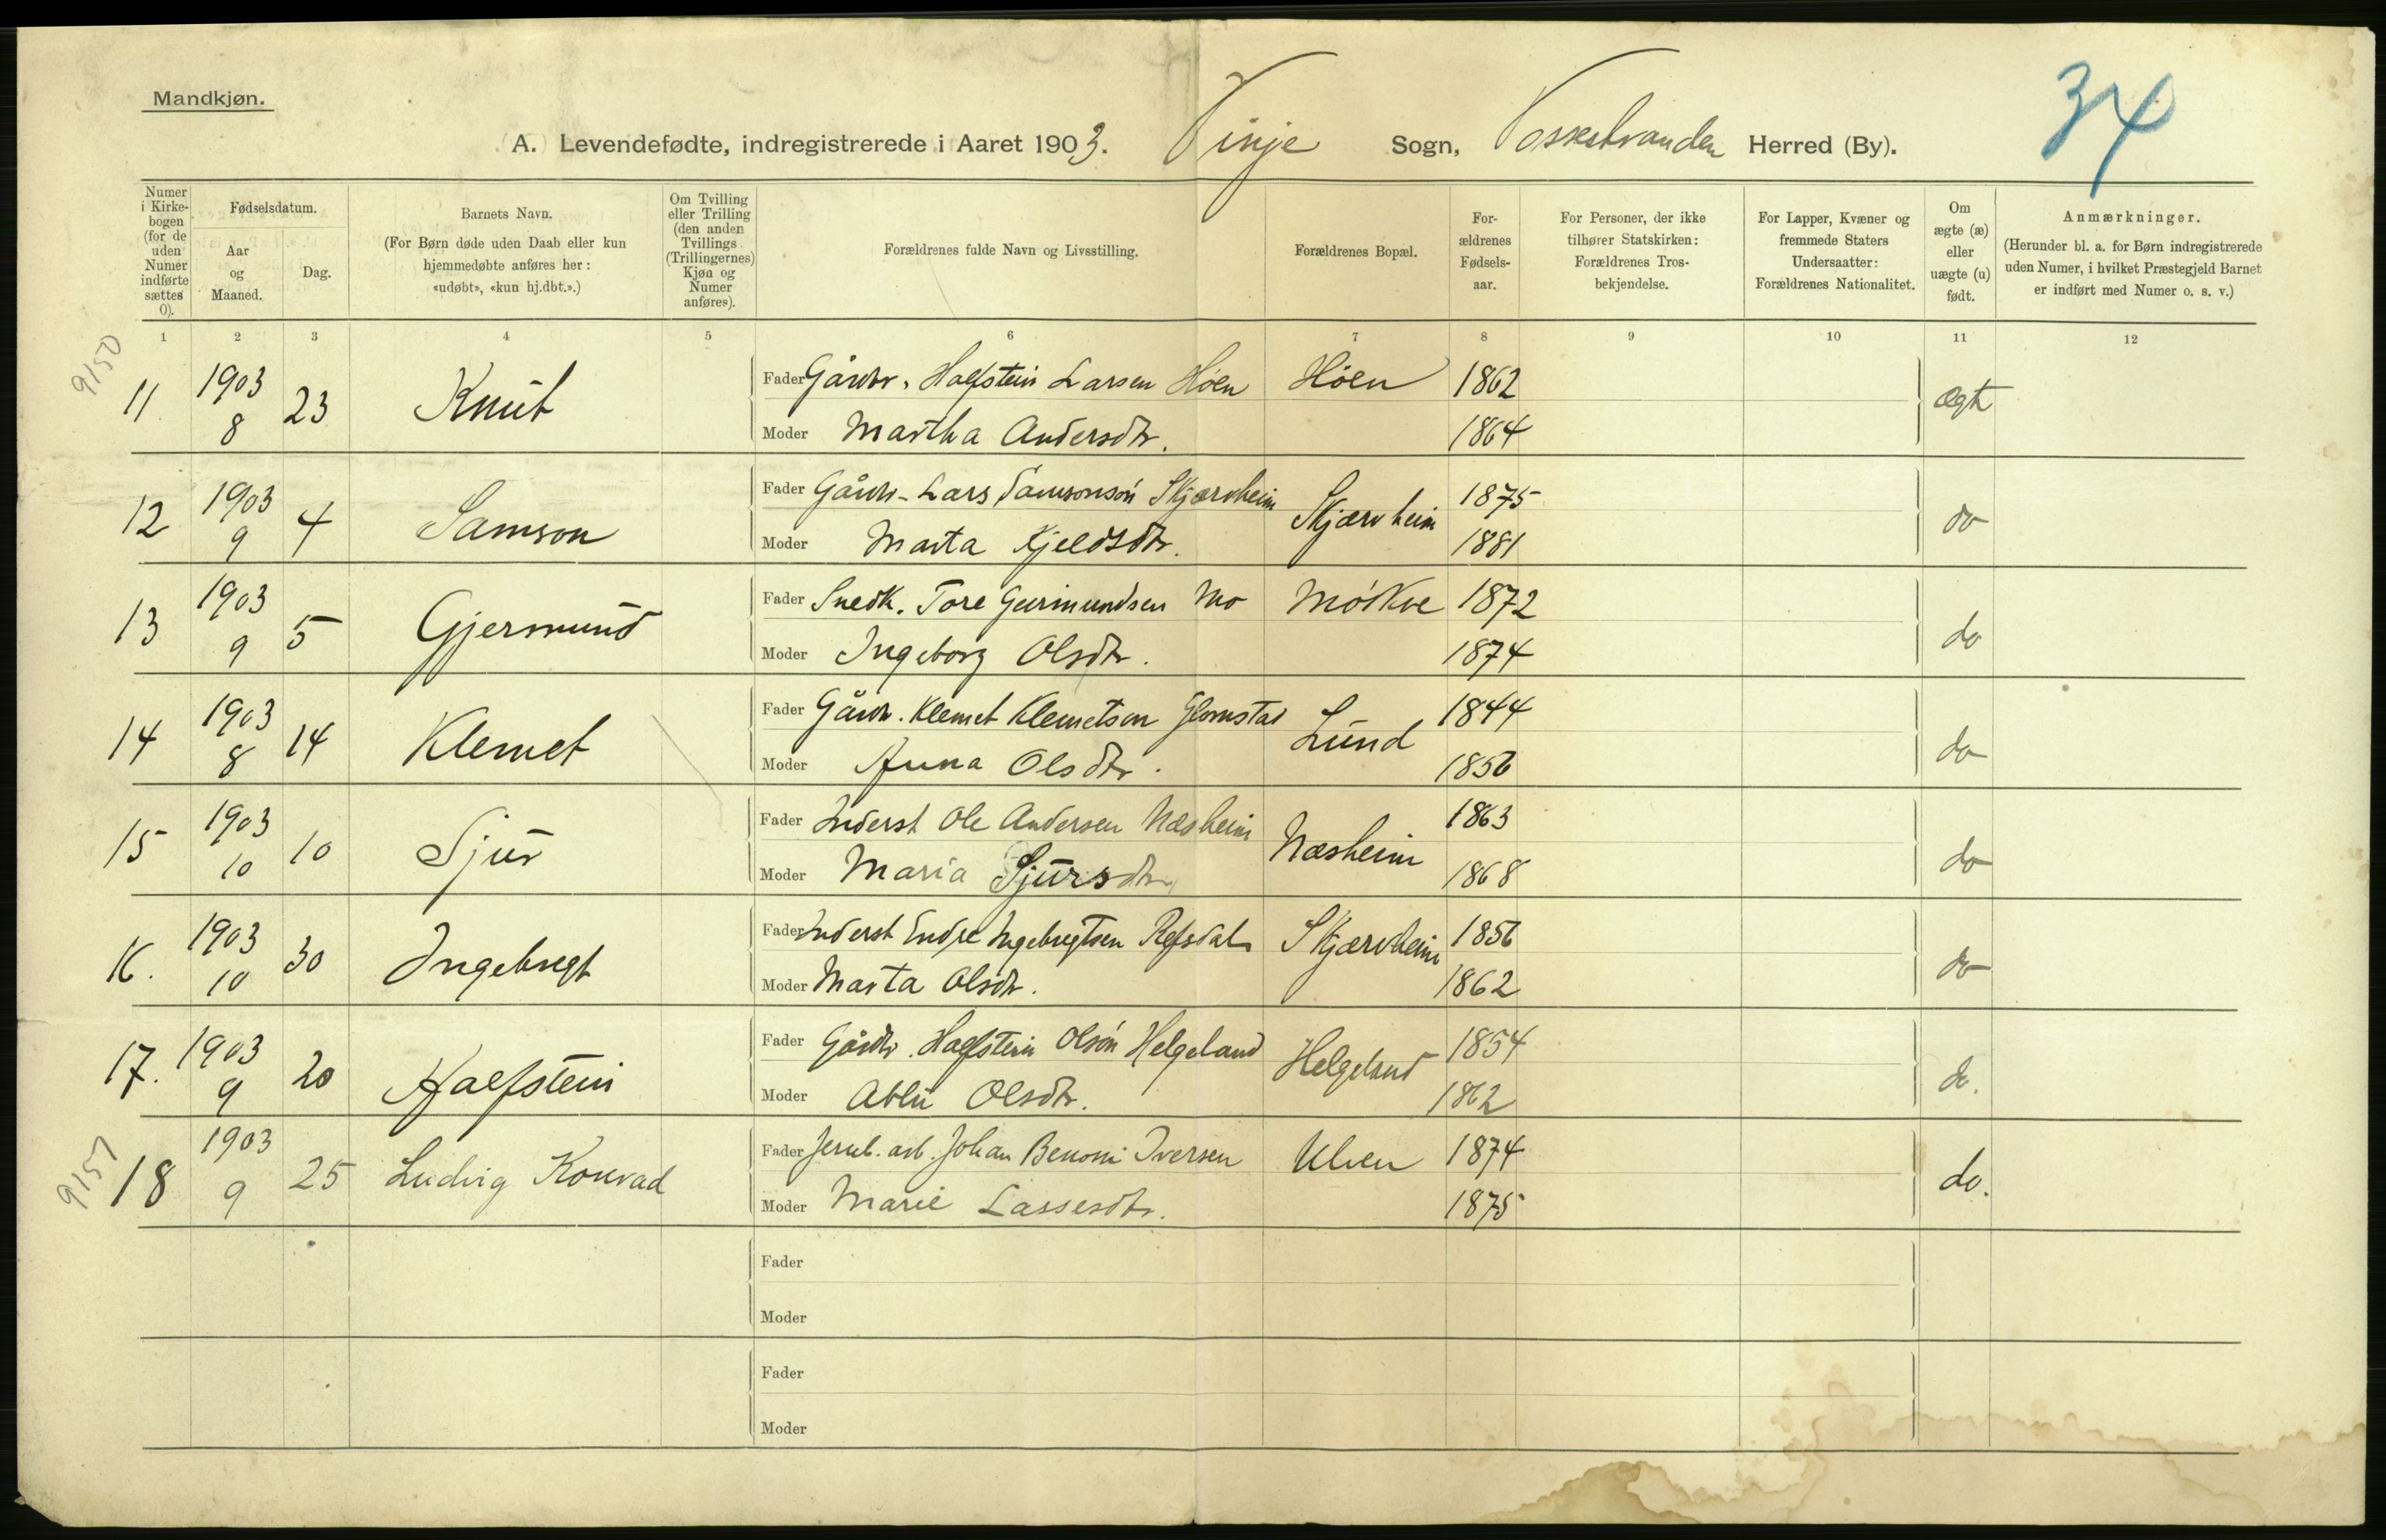 34
Mandkjøn.
A. Levendefødte, indregistrerede i Aaret 1903. Vinje Sogn, Vossestranden Herred (By).
Numer i Kirkebogen (for de uden Numer indførte sættes 0).
Fødselsdatum.
Aar og Maaned.
Dag.
Barnets Navn.
(For Børn døde uden Daab eller kun hjemmedøbte anføres her: «udøbt», «kun hj.dbt.».)
Om Tvilling eller Trilling (den anden Tvillings (Trillingernes) Kjøn og Numer anføres).
Forældrenes fulde Navn og Livsstilling.
Forældrenes Bopæl.
Forældrenes Fødselsaar.
For Personer, der ikke tilhører Statskirken: Forældrenes Trosbekjendelse.
For Lapper, Kvæner og fremmede Staters Undersaatter: Forældrenes Nationalitet.
Om ægte (æ) eller uægte (u) født.
Anmærkninger.
(Herunder bl. a. for Børn indregistrerede uden Numer, i hvilket Præstegjeld Barnet er indført med Numer o. s. v.)
1 2 3 4 5 6 7 8 9 10 11 12
9150
11 1903 8 23 Knut Fader Gårdbr. Halfstein Larsen Höen Höen 1862 ægte
Moder Martha Andersdtr. 1864
12 1903 9 4 Samson Fader Gårdbr. Lars Samsonsön Skjærvheim Skjærvheim 1875 do
Moder Marta Kjeldsdtr. 1881
13 1903 9 5 Gjermund Fader Snedk. Tore Geirmundsen Mo Mörkve 1872 do
Moder Ingeborg Olsdtr. 1874
14 1903 8 14 Klemet Fader Gårdbr. Klemet Klemetsen Glomstad Lund 1844 do
Moder Anna Olsdtr. 1856
15 1903 10 10 Sjur Fader Inderst Ole Andersen Næsheim Næsheim 1863 do
Moder Maria Sjursdtr 1868
16. 1903 10 30 Ingebregt Fader Inderst Endre Ingebregtsen Refsdal Skjærvheim 1856 do
Moder Marta Olsdtr. 1862
17. 1903 9 20 Halfstein Fader Gårdbr. Halfstein Olsön Helgeland Helgeland 1854 do.
Moder Ablu Olsdtr. 1862
9157
18 1903 9 25 Ludvig Konrad Fader Jernb. arb. Johan Benoni Iversen Ulven 1874 do.
Moder Marie Lassesdtr. 1875
Fader
Moder
Fader
Moder